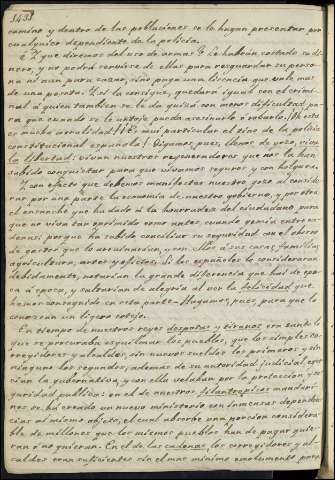 343
camino y dentro de las poblaciones se lo hagan presentar por
cualquier dependiente de la policía.
¿Y que diremos del uso de armas? Le habrán costado su di-
nero, y no podrá servirse de ellas para resguardar su perso-
na ni aun para cazar, sino paga una licencia que vale mas
de una peseta. Y si la consigue, quedará igual con el crimi-
nal á quien tambien se le da quizá con menos dificultad pa-
ra que cuando se le antoje pueda asesinarlo ó robarlo. ¡Ah esta
es mucha igualdad! ¡Es muy particular el tino de la policía
constitucional española! Digamos pues, llenos de gozo, viva
la libertad: vivan nuestros regeneradores que nos la han
sabido conquistar para que vivamos seguros y con desquice.
Y con efecto que debemos manifestar nuestro gozo al conside-
rar por una parte la economía de nuestro gobierno, y por otra
el ensanche que ha dado á la honradez del ciudadano para
que no viva tan oprimido como antes, cuando gemia entre ca-
denas; porque ha sabido conciliar su seguridad con el ahorro
de gastos que lo arruinarian, y con ellos á sus casas, familias,
agricultura, artes y oficios. Si los españoles lo consideraran
debidamente, notarian la grande diferencia que hai de epo-
ca á epoca, y saltarian de alegria al ver la felicidad que
hemos conseguido en esta parte. Hagamos, pues, para que lo
conozcan un ligero cotejo.
En tiempo de nuestros reyes despotas y tiranos era tanto lo
que se procuraba esquilmar los pueblos, que los simples co-
rregidores y alcaldes, sin nuevos sueldos los primeros y sin
ninguno los segundos, ademas de su autoridad judicial, ejer-
cian la gubernativa, y con ella velaban por la proteccion y se-
guridad publica: en el de nuestros filantropicos mandari-
nes se ha creado un nuevo ministerio con inmensas dependen-
cias al mismo objeto, el cual absorbe una porcion considera-
ble de millones que los mismos pueblos han de pagar quie-
ran ó no quieran. En el de las cadenas, los corregidores y al-
caldes eran suficientes sin el mas minimo emolumento para